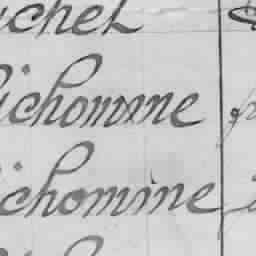 ichel
ichomme
ichomine